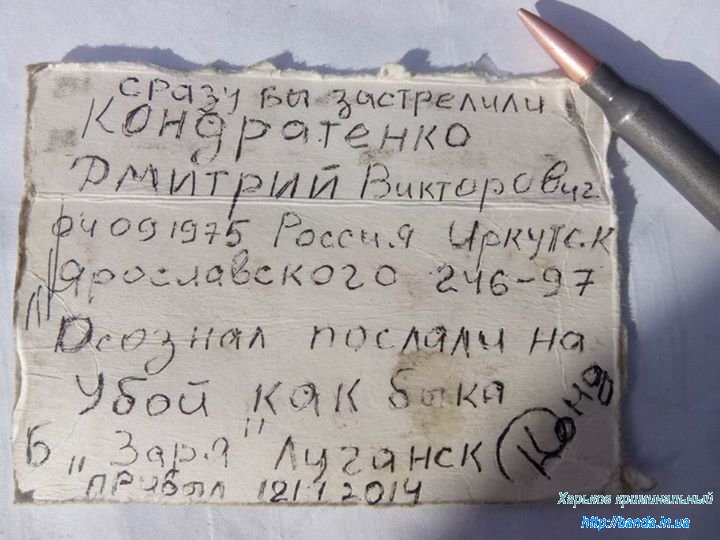 сразу вы застрелили
Кондратенко
Дмитрий Викторович
04091975 Россия Иркутск
Ярославского 246-97
"Осознал послали на
Убой как быка
Б "Заря" Луганск Конд
прибыл 121 1 2014
Харьков криминальный
http://banda.in.ua